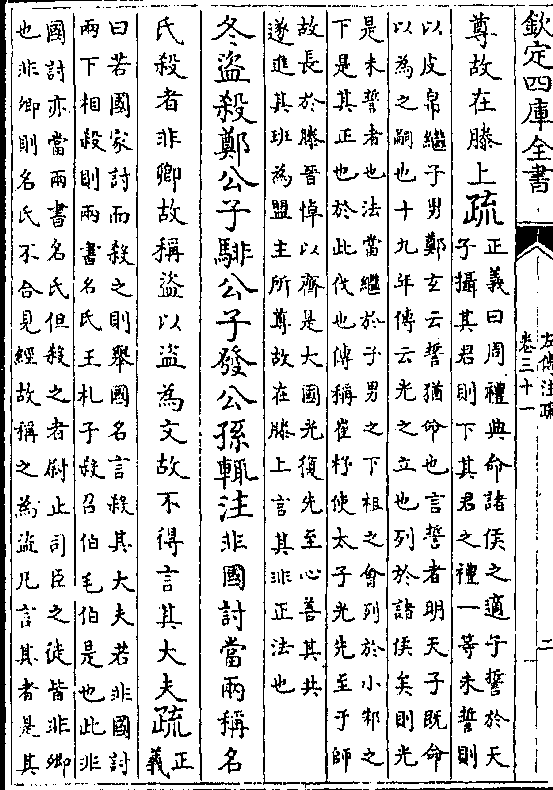 欽定四庫全書
左傳注疏
卷三十一
二
尊故在滕上疏
正義曰周禮典命諸侯之適子誓於天
子攝其君則下其君之禮一等未誓則
以皮帛繼子男鄭玄云誓猶命也言誓者明天子既命
以為之嗣也十九年傳云光之立也列於諸侯矣則光
是未誓者也法當繼於子男之下柤之會列於小邾之
下是其正也於此伐也傳稱崔杼使太子光先至于師
故長於滕晉悼以齊是大國光復先至心善其共
遂進其班為盟主所尊故在滕上言其非正法也
冬盜殺鄭公子騑公子發公孫輒注非國討當兩稱名
氏殺者非卿故稱盜以盜為文故不得言其大夫疏
正
義
曰若國家討而殺之則舉國名言殺其大夫若非國討
兩下相殺則兩書名氏王札子殺召伯毛伯是也此非
國討亦當兩書名氏但殺之者尉止司臣之徒皆非卿
也非卿則名氏不合見經故稱之為盜凡言其者是其